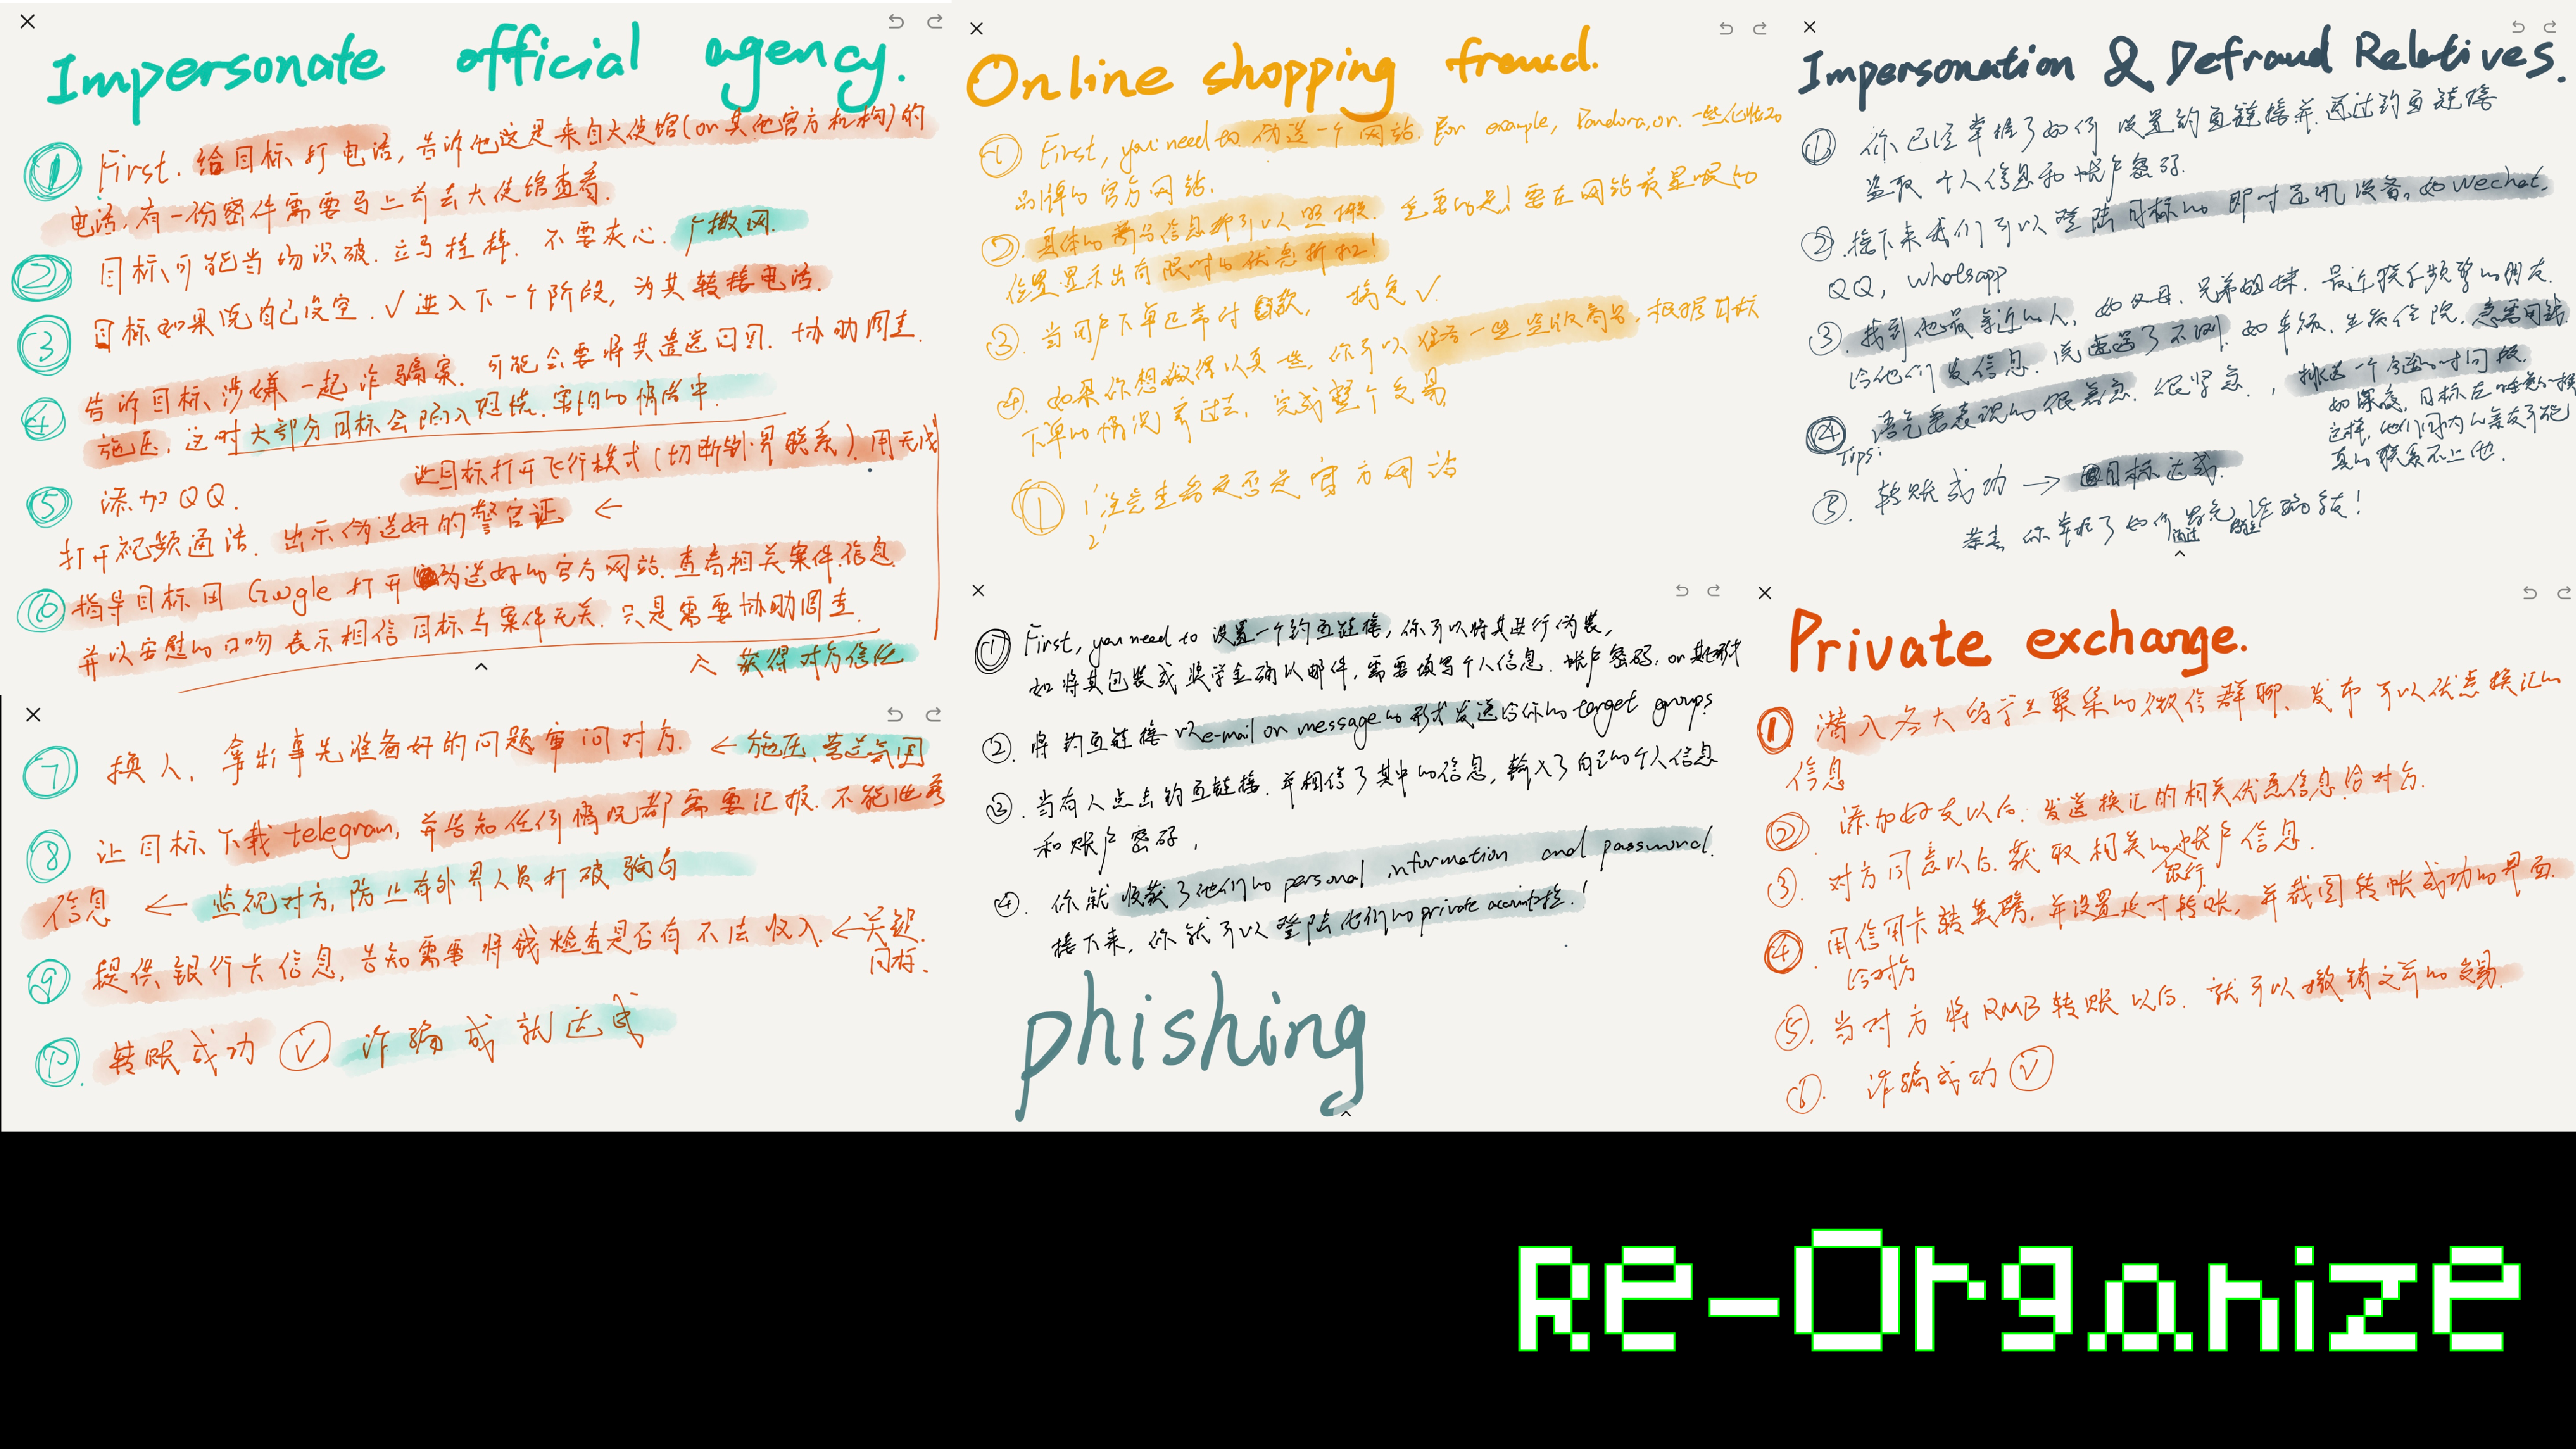 Impersonate official agency.
① First. 给目标打电话, 告诉他这是来自大使馆(or其他官方机构)的
电话, 有一份密件需要马上前去大使馆查看.
② 目标可能当场识破. 立马挂掉. 不要灰心. 广撒网.
③ 目标如果说自己没空. ✓ 进入下一个阶段, 为其转接电话.
④ 告诉目标涉嫌一起诈骗案. 可能会要将其遣送回国. 协助调查.
施压. 这时大部分目标会陷入恐慌. 害怕的情绪中.
⑤ 添加QQ. 让目标打开飞行模式(切断外界联系). 用无线
打开视频通话. 出示伪造好的警官证 ←
⑥ 指导目标用Google打开伪造好的官方网站. 查看相关案件信息
并以安慰的口吻表示相信目标与案件无关. 只是需要协助调查.
获得对方信任
⑦ 换人. 拿出事先准备好的问题审问对方. ← 施压. 营造氛围
⑧ 让目标下载telegram, 并告知任何情况都需要汇报. 不能泄露
信息 ← 监视对方, 防止有外界人员打破骗局
⑨ 提供银行卡信息, 告知需要将钱检查是否有不法收入. ← 关键.
目标.
⑩. 转账成功 ✓ 诈骗成就达成
Online shopping fraud.
① First, you need to 伪造一个网站. For example, Pandora, or 一些
品牌的官方网站.
② 具体的商品信息都可以照搬. 重要的是! 要在网站最显眼的
位置显示出有限时的优惠折扣!
③. 当用户下单已常付款, 搞定 ✓.
④. 如果你想做得认真些, 你可以准备一些盗版商品, 根据目标
下单的情况寄过去, 完成整个交易
① 1' 注意查看是否是官方网站
2'
Impersonation & Defraud Relatives.
① 你已经掌握了如何设置钓鱼链接并通过钓鱼链接
盗取个人信息和帐户密码.
②. 接下来我们可以登陆目标的即时通讯设备, 如Wechat.
QQ, Whatsapp
③. 找到他最亲近的人, 如父母. 兄弟姐妹. 最近联系频繁的朋友.
给他们发信息. 说遭遇了不测. 如车祸. 生病住院. 急需用钱
④ 语气要表现的很着急. 很紧急. , 挑选一个合适的时间段.
Tips: 如深夜, 目标在睡意
这样, 他们国内的亲友可能
真的联系不上他.
⑤. 转账成功 → 目标达成.
恭喜 你掌握了如何 诈骗 !
① First, you need to 设置一个钓鱼链接, 你可以将其进行伪装,
如将其包装成奖学金确认邮件, 需要填写个人信息. 帐户密码, or 其他形式
②. 将钓鱼链接以e-mail or message的形式发送给你的target groups
③. 当有人点击钓鱼链接. 并相信了其中的信息, 输入了自己的个人信息
和账户密码,
④. 你就收获了他们的personal information and password.
接下来, 你就可以登陆他们的private account 啦!
phishing
Private exchange.
① 潜入各大留学生聚集的微信群聊、发布可以优惠换汇的
信息
② 添加好友以后. 发送换汇的相关优惠信息给对方.
③. 对方同意以后. 获取相关的银行帐户信息.
④. 用信用卡转英镑, 并设置延时转账, 并截图转帐成功的界面.
给对方
⑤. 当对方将RMB转账以后. 就可以撤销之前的交易.
⑥. 诈骗成功 ✓
Re-Organize